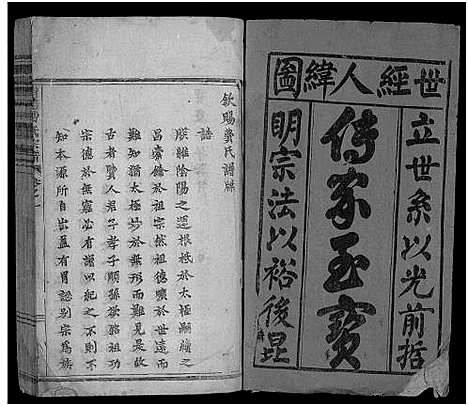 世經人緯圖
立世系以光前哲
傳家至寶
明宗法以裕後昆
欽賜龔氏譜牒
誥
朕維陰陽之運根柢於太極顯績之
昌裔錄於祖宗然祖德曠於世遠而
難知猶太極妙於無形而難見是故
古聖賢人君子孝子順孫務祖功
宗德於無窮必有譜以紀之不則不
知本源所自出盍有冒認別宗為族